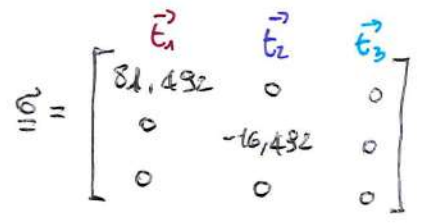 t₁ t₂ t₃
σ = [ 81,492 0 0
0 -16,492 0
0 0 0 ]